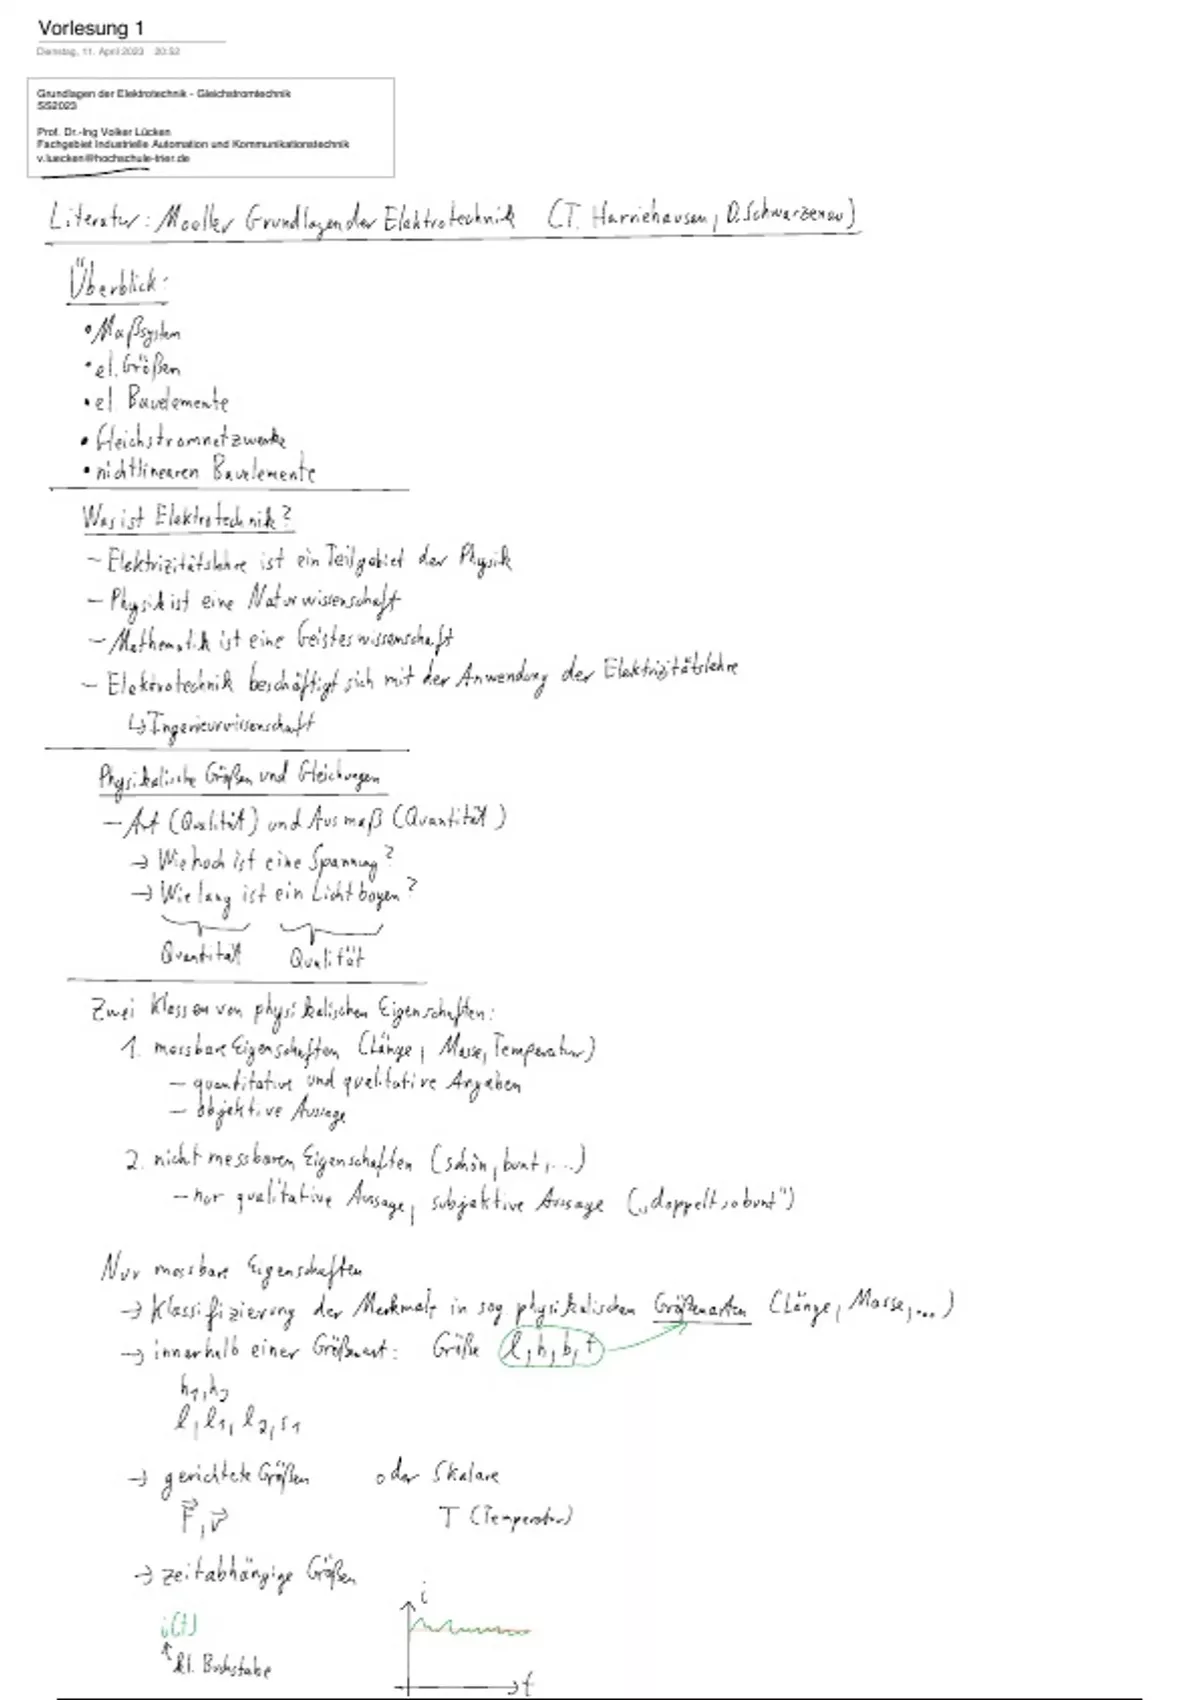 Vorlesung 1
Dienstag, 11. April 2023 20:52
Grundlagen der Elektrotechnik - Gleichstromtechnik
SS2023
Prof. Dr.-Ing Volker Lücken
Fachgebiet Industrielle Automation und Kommunikationstechnik
v.luecken@hochschule-trier.de
Literatur: Moeller Grundlagen der Elektrotechnik (T. Harriehausen, D. Schwarzenau)
Überblick:
• Maßsystem
• el. Größen
• el. Bauelemente
• Gleichstromnetzwerke
• nichtlinearen Bauelemente
Was ist Elektrotechnik?
- Elektrizitätslehre ist ein Teilgebiet der Physik
- Physik ist eine Naturwissenschaft
- Mathematik ist eine Geisteswissenschaft
- Elektrotechnik beschäftigt sich mit der Anwendung der Elektrizitätslehre
↳ Ingenieurwissenschaft
Physikalische Größen und Gleichungen
- Art (Qualität) und Ausmaß (Quantität)
→ Wie hoch ist eine Spannung?
→ Wie lang ist ein Lichtbogen?
Quantität Qualität
Zwei Klassen von physikalischen Eigenschaften:
1. messbare Eigenschaften (Länge, Masse, Temperatur)
- quantitative und qualitative Angaben
- objektive Aussage
2. nicht messbaren Eigenschaften (schön, bunt, ...)
- nur qualitative Aussage, subjektive Aussage („doppelt so bunt")
Nur messbare Eigenschaften
→ Klassifizierung der Merkmale in sog. physikalischen Größenarten (Länge, Masse, ...)
→ innerhalb einer Größenart: Größe l, h, b, t
h₁, h₂
l, l₁, l₂, s₁
→ gerichtete Größen oder Skalare
F⃗, v⃗ T (Temperatur)
→ zeitabhängige Größen
i
i(t)
↑ kl. Buchstabe
t